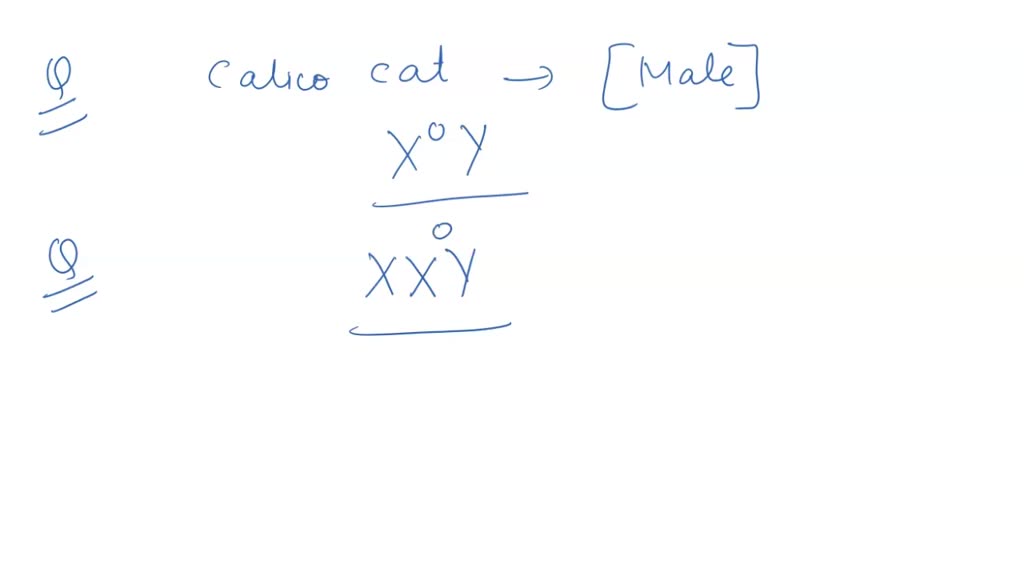 Q Calico cat → [Male]
X⁰Y
Q XX⁰Y